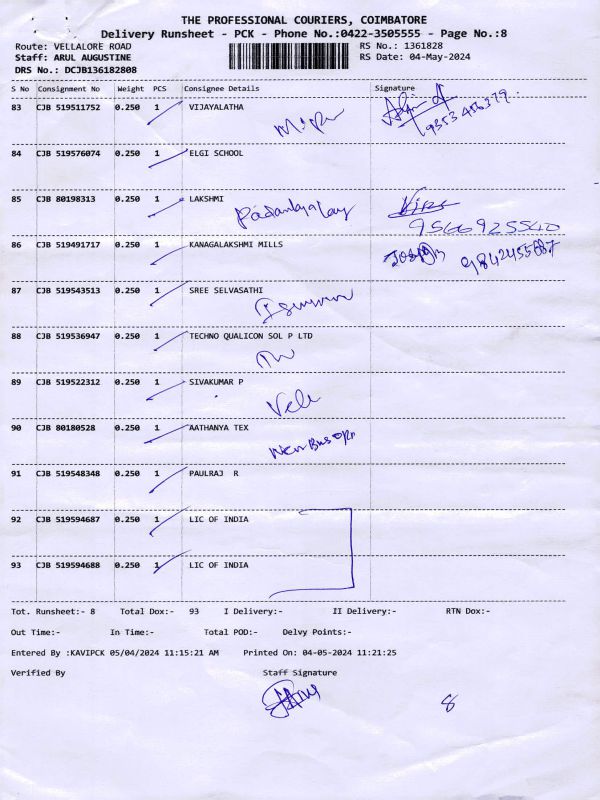 THE PROFESSIONAL COURIERS, COIMBATORE
Delivery Runsheet - PCK - Phone No.:0422-3505555 - Page No.:8
Route: VELLALORE ROAD RS No.: 1361828
Staff: ARUL AUGUSTINE RS Date: 04-May-2024
DRS No.: DCJB136182808
S No Consignment No Weight PCS Consignee Details Signature
83 CJB 519511752 0.250 1 VIJAYALATHA
84 CJB 519576074 0.250 1 ELGI SCHOOL
85 CJB 80198313 0.250 1 LAKSHMI
9566925540
86 CJB 519491717 0.250 1 KANAGALAKSHMI MILLS
9842455687
87 CJB 519543513 0.250 1 SREE SELVASATHI
88 CJB 519536947 0.250 1 TECHNO QUALICON SOL P LTD
89 CJB 519522312 0.250 1 SIVAKUMAR P
90 CJB 80180528 0.250 1 AATHANYA TEX
91 CJB 519548348 0.250 1 PAULRAJ R
92 CJB 519594687 0.250 1 LIC OF INDIA
93 CJB 519594688 0.250 1 LIC OF INDIA
Tot. Runsheet:- 8 Total Dox:- 93 I Delivery:- II Delivery:- RTN Dox:-
Out Time:- In Time:- Total POD:- Delvy Points:-
Entered By :KAVIPCK 05/04/2024 11:15:21 AM Printed On: 04-05-2024 11:21:25
Verified By Staff Signature
8